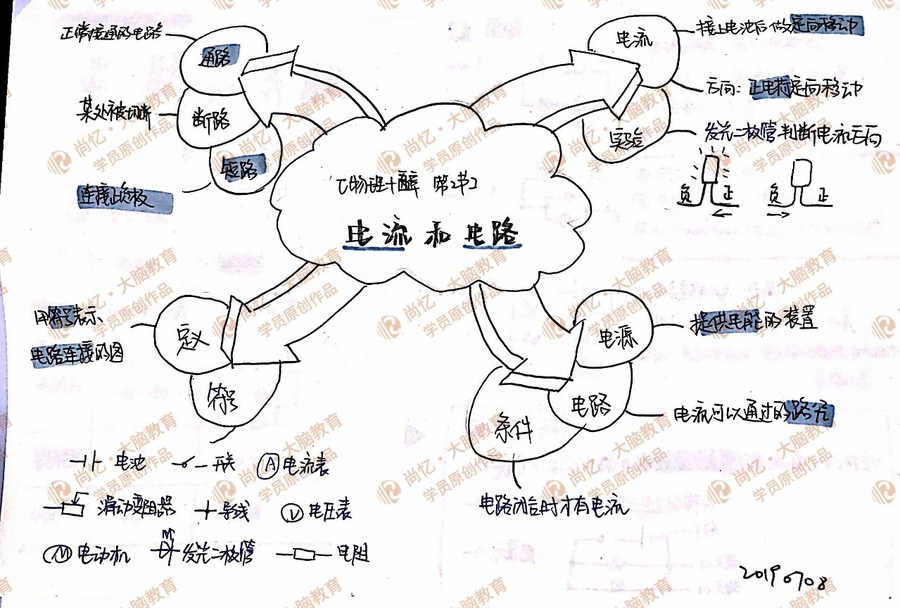 正常接通的电路
通路
某处被切断
断路
短路
连接两极
电流
接上电池后做定向移动
方向：正电荷定向移动
实验
发光二极管判断电流方向
负 正
负 正
第2节
电流和电路
用符号表示、
电路连接的图
定义
符号
电池 开关 A 电流表
滑动变阻器 导线 V 电压表
M 电动机 发光二极管 电阻
电源
提供电能的装置
电路
电流可以通过的路径
条件
电路闭合时才有电流
20190708
尚忆·大脑教育
学员原创作品